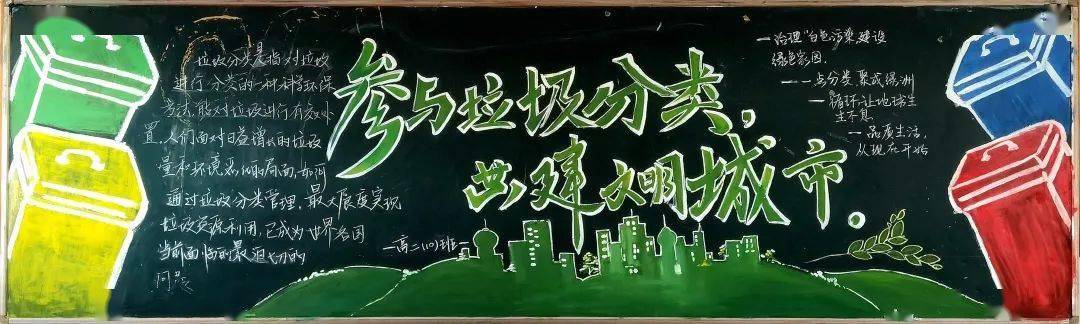 垃圾分类是指对垃圾
进行分类的一种科学环保
方法,能对垃圾进行有效处
置,人们面对日益增长的垃圾
量和环境恶化的局面,如何
通过垃圾分类管理,最大限度实现
垃圾资源利用,已成为世界各国
当前面临的最迫切的
问题
参与垃圾分类,
共建文明城市。
一高二(10)班一
一治理"白色污染,建设
绿色家园.
一一点分类,聚成绿洲
一循环,让地球生
生不息
一品质生活,
从现在开始